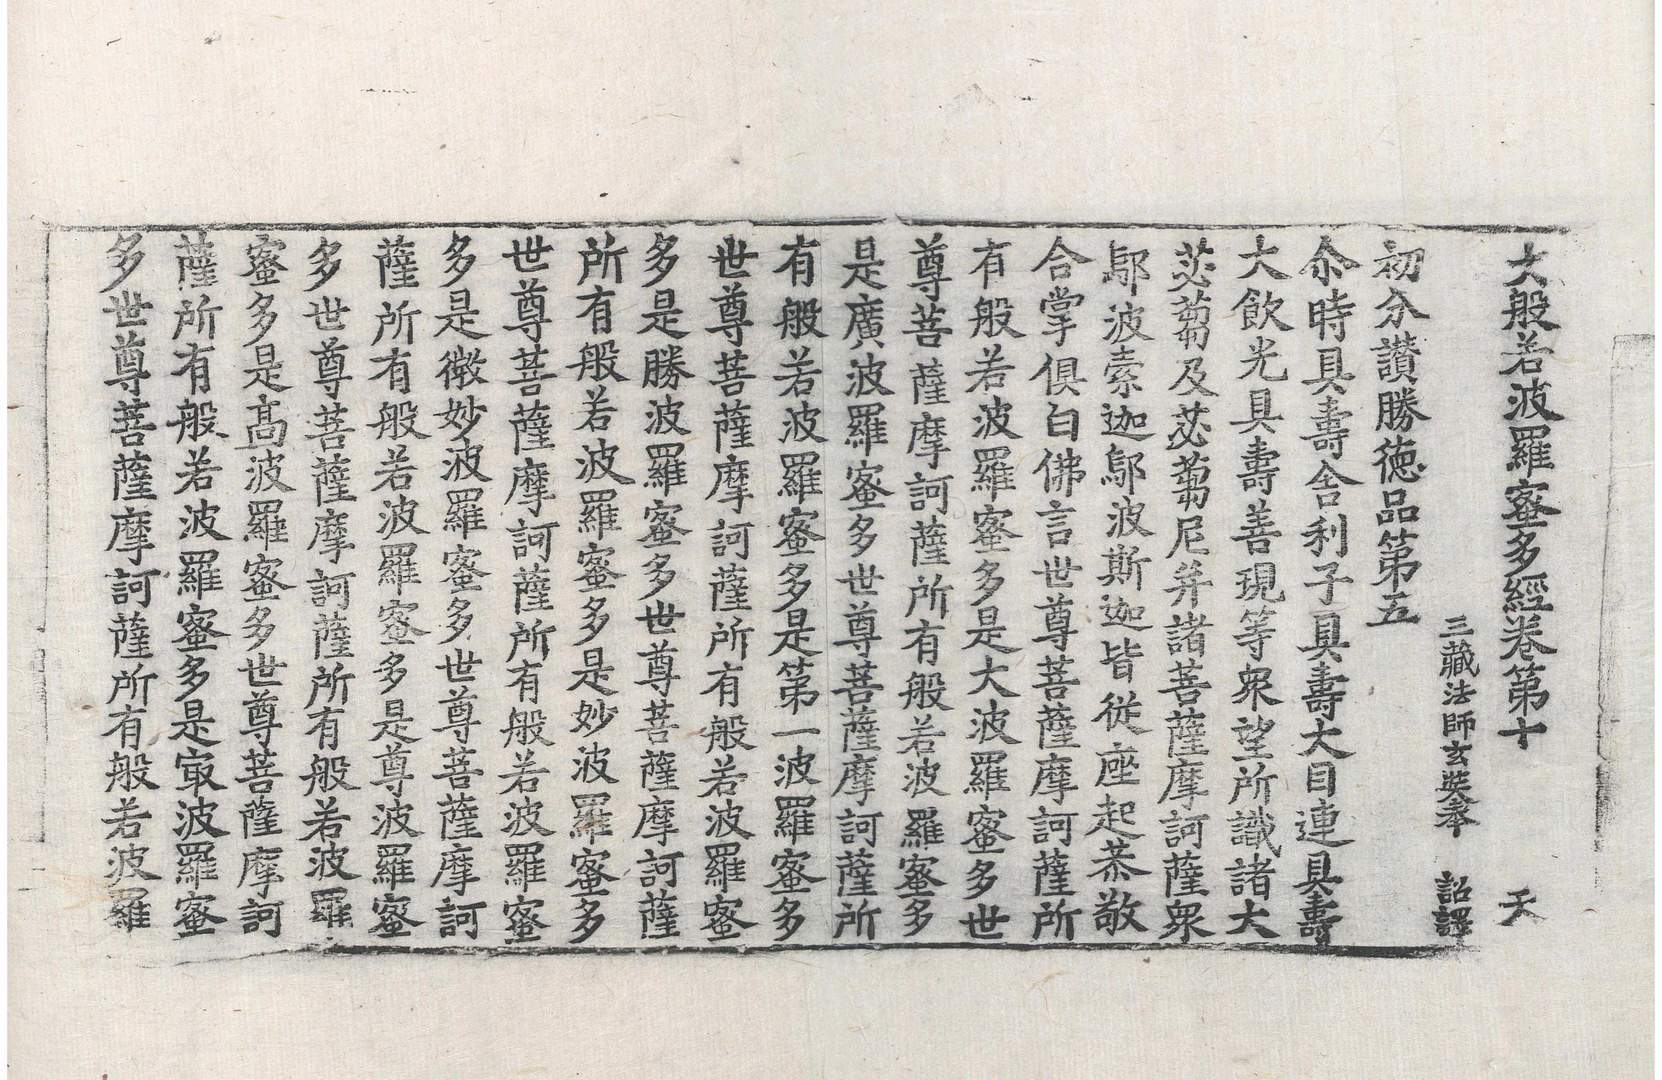 大般若波羅蜜多經卷第十 天
三藏法師玄奘奉 詔譯
初分讚勝德品第五
尒時具壽舍利子具壽大目連具壽
大飲光具壽善現等衆望所識諸大
苾蒭及苾蒭尼并諸菩薩摩訶薩衆
鄔波索迦鄔波斯迦皆從座起恭敬
合掌俱白佛言世尊菩薩摩訶薩所
有般若波羅蜜多是大波羅蜜多世
尊菩薩摩訶薩所有般若波羅蜜多
是廣波羅蜜多世尊菩薩摩訶薩所
有般若波羅蜜多是第一波羅蜜多
世尊菩薩摩訶薩所有般若波羅蜜
多是勝波羅蜜多世尊菩薩摩訶薩
所有般若波羅蜜多是妙波羅蜜多
世尊菩薩摩訶薩所有般若波羅蜜
多是微妙波羅蜜多世尊菩薩摩訶
薩所有般若波羅蜜多是尊波羅蜜
多世尊菩薩摩訶薩所有般若波羅
蜜多是高波羅蜜多世尊菩薩摩訶
薩所有般若波羅蜜多是㝡波羅蜜
多世尊菩薩摩訶薩所有般若波羅